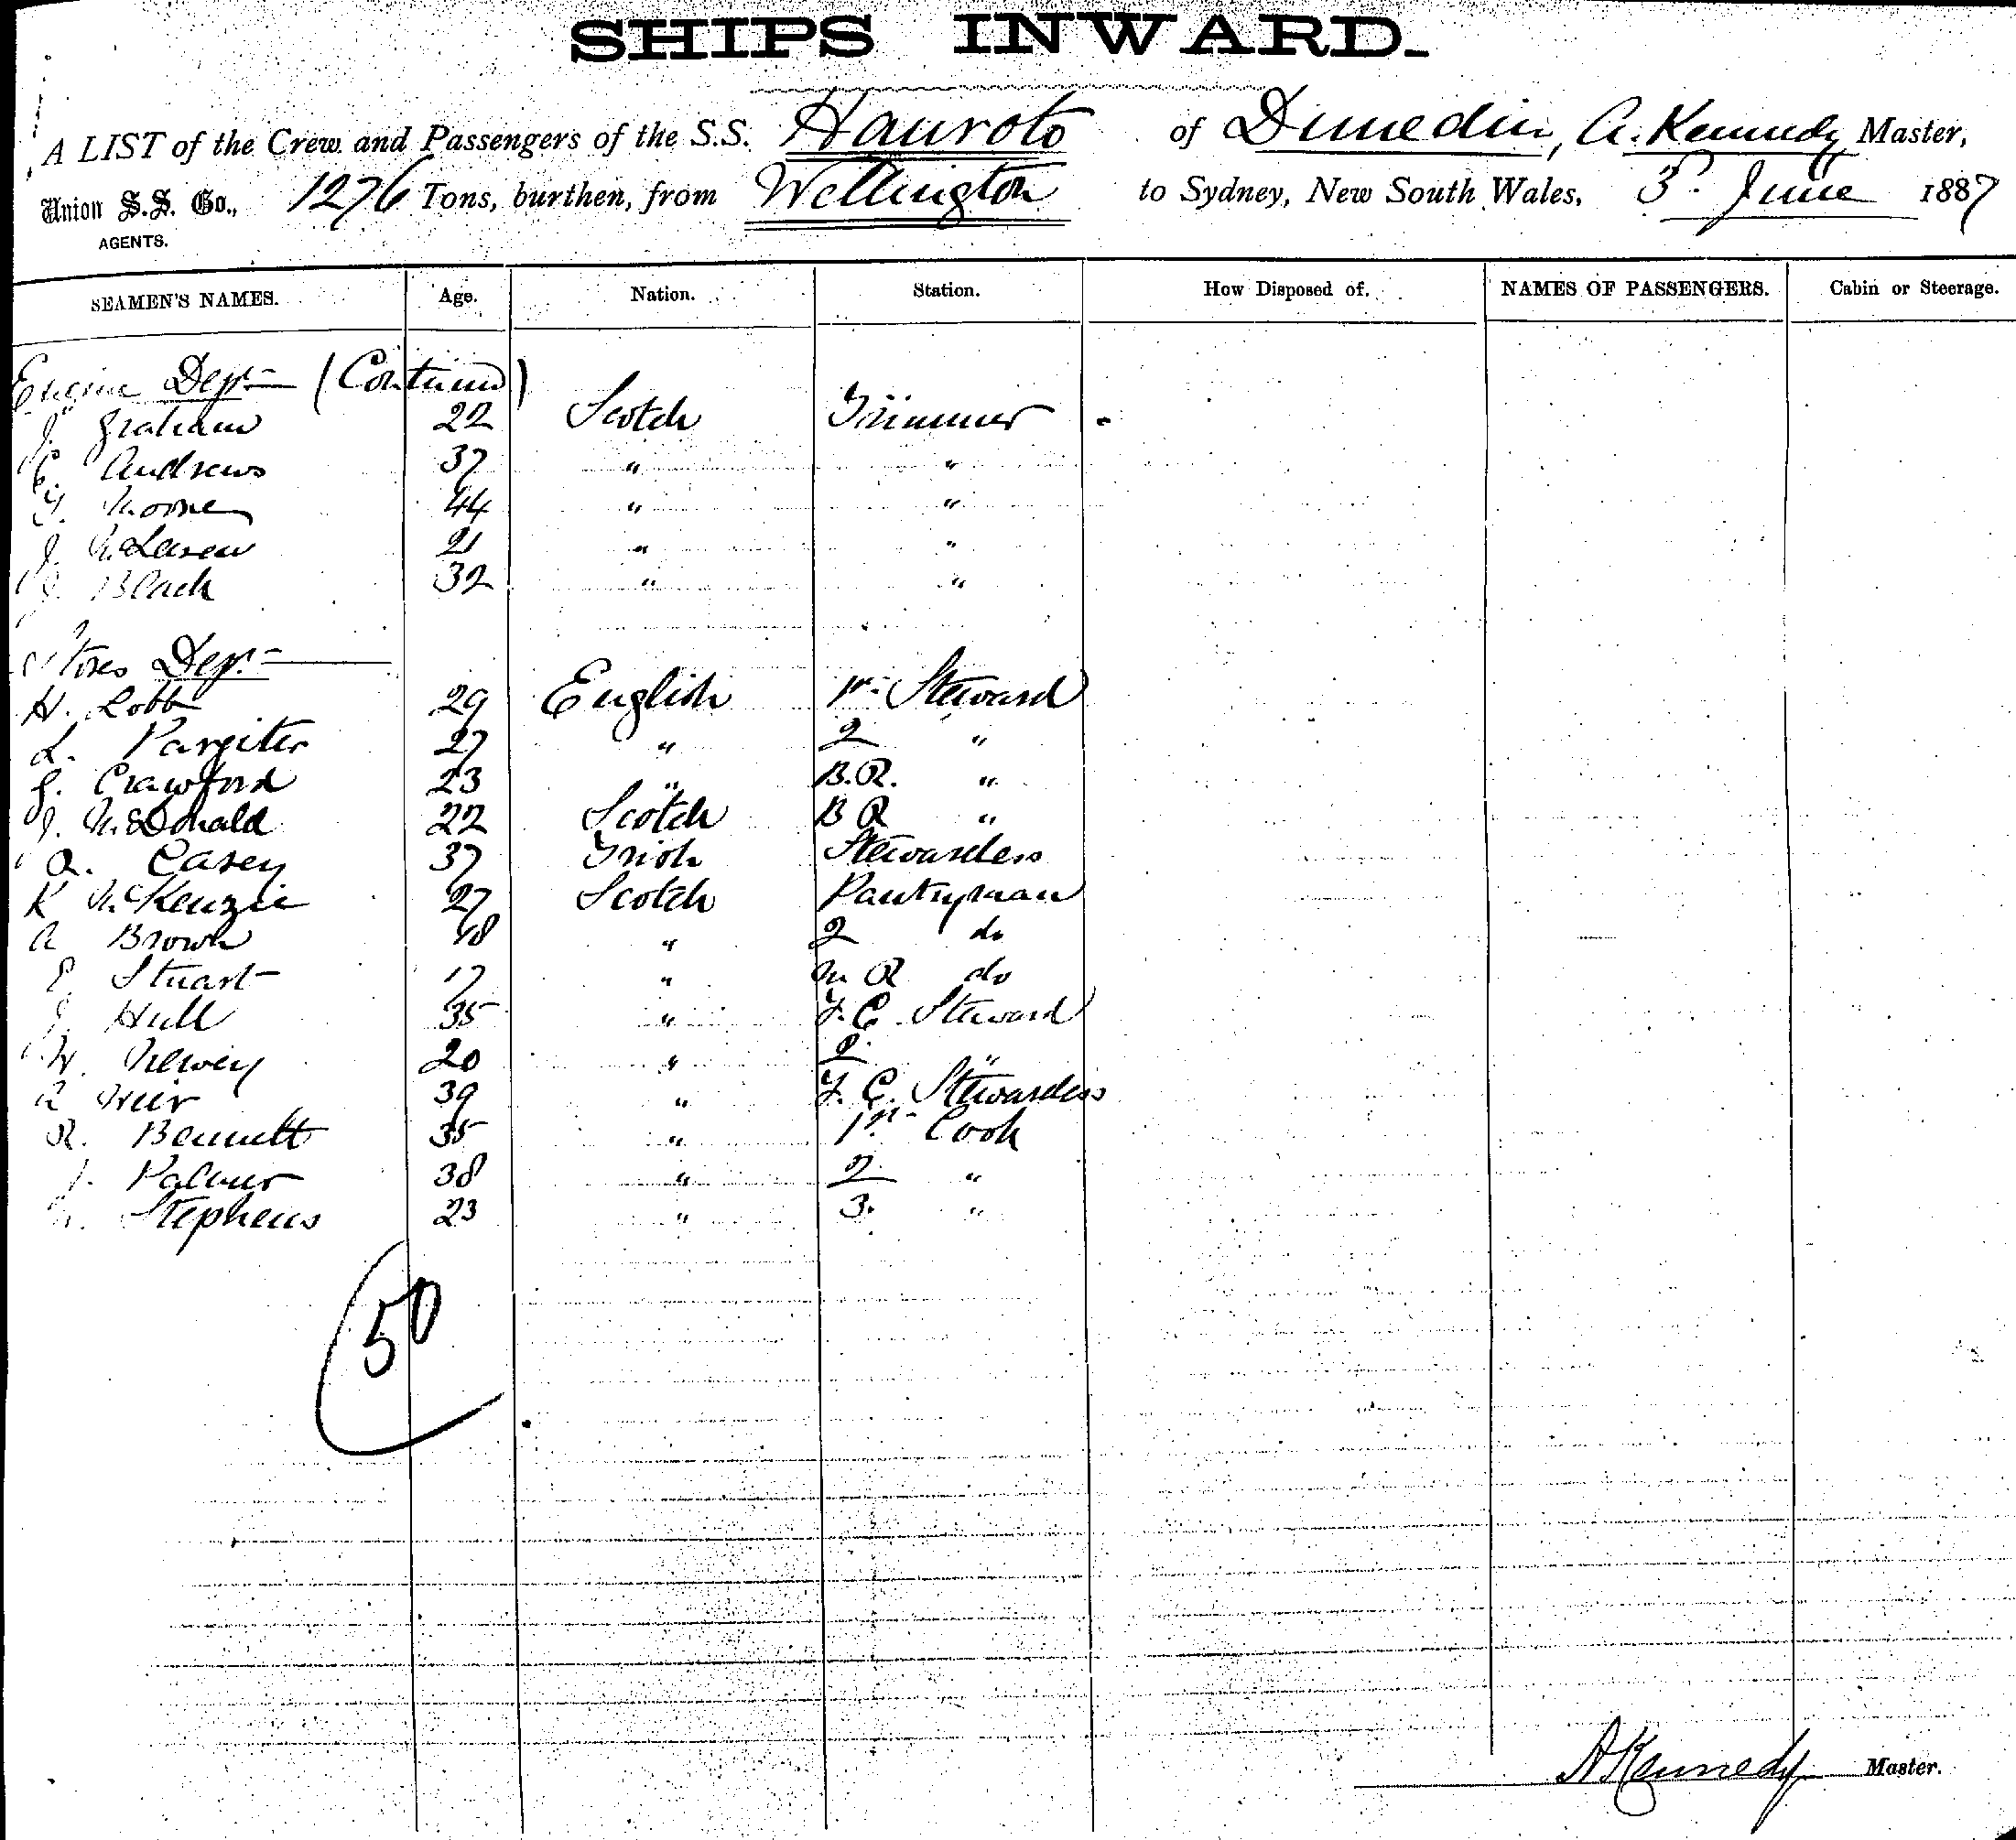 SHIPS INWARD.
A LIST of the Crew and Passengers of the S.S. Hauroto of Dunedin, A. Kennedy Master,
Union S.S. Co., 1276 Tons, burthen, from Wellington to Sydney, New South Wales, 3 June 1887
AGENTS.
SEAMEN'S NAMES. Age. Nation. Station. How Disposed of. NAMES OF PASSENGERS. Cabin or Steerage.
Engine Dept (Continued)
J. Graham 22 Scotch Trimmer
C. Andrews 37 " "
44 " "
J. 21 " "
Black 32 " "
Stores Dept
H. Lobb 29 English 1st Steward
L. Pargiter 27 " 2 "
G. Crawford 23 " B.R. "
J. McDonald 22 Scotch B R "
A. Casey 37 Irish Stewardess
K McKenzie 27 Scotch Pantryman
A Brown 18 " 2 do
E. Stuart 17 " M R do
J. Hull 35 " F.C. Steward
W. 20 " 2 "
A Weir 39 " F.C. Stewardess
R. Bennett 35 " 1st Cook
J. Palmer 38 " 2 "
Stephens 23 " 3. "
50
A Kennedy Master.